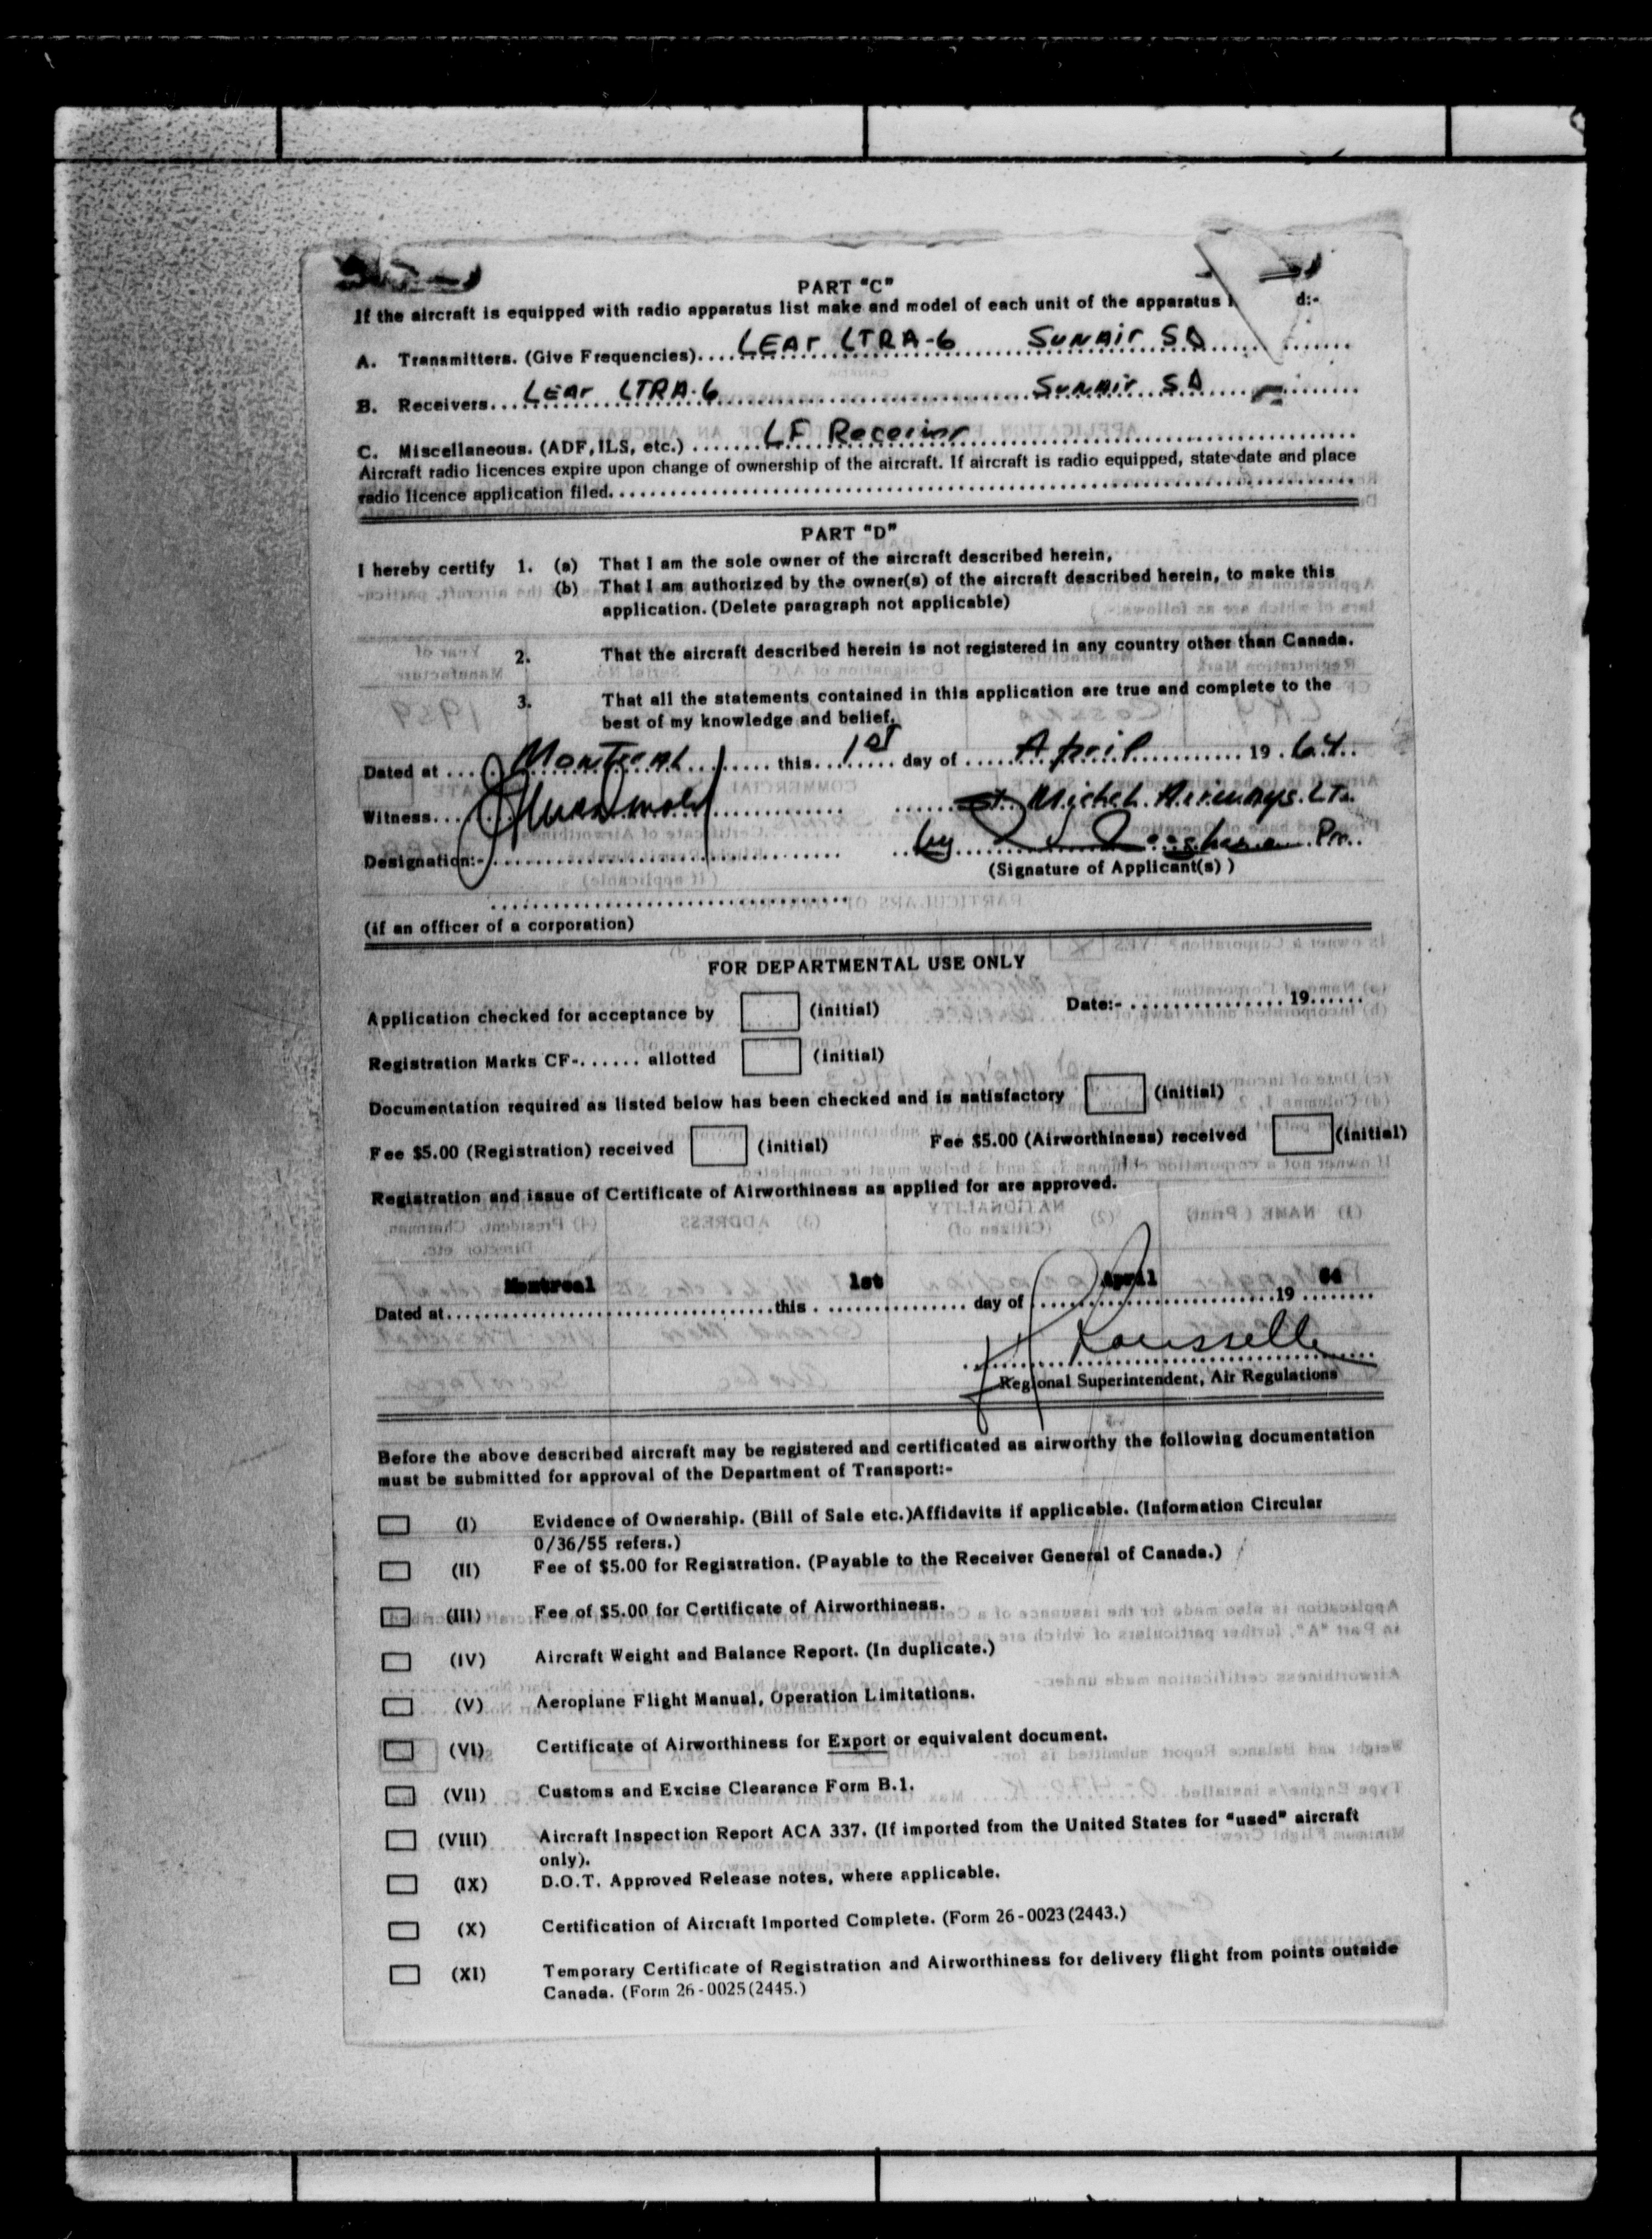 PART "C"
If the aircraft is equipped with radio apparatus list make and model of each unit of the apparatus d:-
A. Transmitters. (Give Frequencies).... LEAr LTRA-6 SUNAir 5D
B. Receivers... LEAr LTRA-6 SUNAir 5D
C. Miscellaneous. (ADF, ILS, etc.) ....... LF
Aircraft radio licences expire upon change of ownership of the aircraft. If aircraft is radio equipped, state date and place
radio licence application filed.
PART "D"
I hereby certify 1. (a) That I am the sole owner of the aircraft described herein,
(b) That I am authorized by the owner(s) of the aircraft described herein, to make this
application. (Delete paragraph not applicable)
2. That the aircraft described herein is not registered in any country other than Canada.
3. That all the statements contained in this application are true and complete to the
best of my knowledge and belief.
Dated at .... Montreal ....... this. 1st ..... day of ..... April ........... 19.64..
Witness.... St. Michel. Airways. LTD.
Designation:- by Pr..
(Signature of Applicant(s) )
(if an officer of a corporation)
FOR DEPARTMENTAL USE ONLY
Application checked for acceptance by (initial) Date:- ................ 19......
Registration Marks CF-...... allotted (initial)
Documentation required as listed below has been checked and is satisfactory (initial)
Fee $5.00 (Registration) received (initial) Fee $5.00 (Airworthiness) received (initial)
Registration and issue of Certificate of Airworthiness as applied for are approved.
Dated at Montreal this 1st day of April 19 64
Rousselle
Regional Superintendent, Air Regulations
Before the above described aircraft may be registered and certificated as airworthy the following documentation
must be submitted for approval of the Department of Transport:-
(I) Evidence of Ownership. (Bill of Sale etc.)Affidavits if applicable. (Information Circular
0/36/55 refers.)
(II) Fee of $5.00 for Registration. (Payable to the Receiver General of Canada.)
(III) Fee of $5.00 for Certificate of Airworthiness.
(IV) Aircraft Weight and Balance Report. (In duplicate.)
(V) Aeroplane Flight Manual, Operation Limitations.
(VI) Certificate of Airworthiness for Export or equivalent document.
(VII) Customs and Excise Clearance Form B.1.
(VIII) Aircraft Inspection Report ACA 337. (If imported from the United States for "used" aircraft
only).
(IX) D.O.T. Approved Release notes, where applicable.
(X) Certification of Aircraft Imported Complete. (Form 26-0023(2443.)
(XI) Temporary Certificate of Registration and Airworthiness for delivery flight from points outside
Canada. (Form 26-0025(2445.)